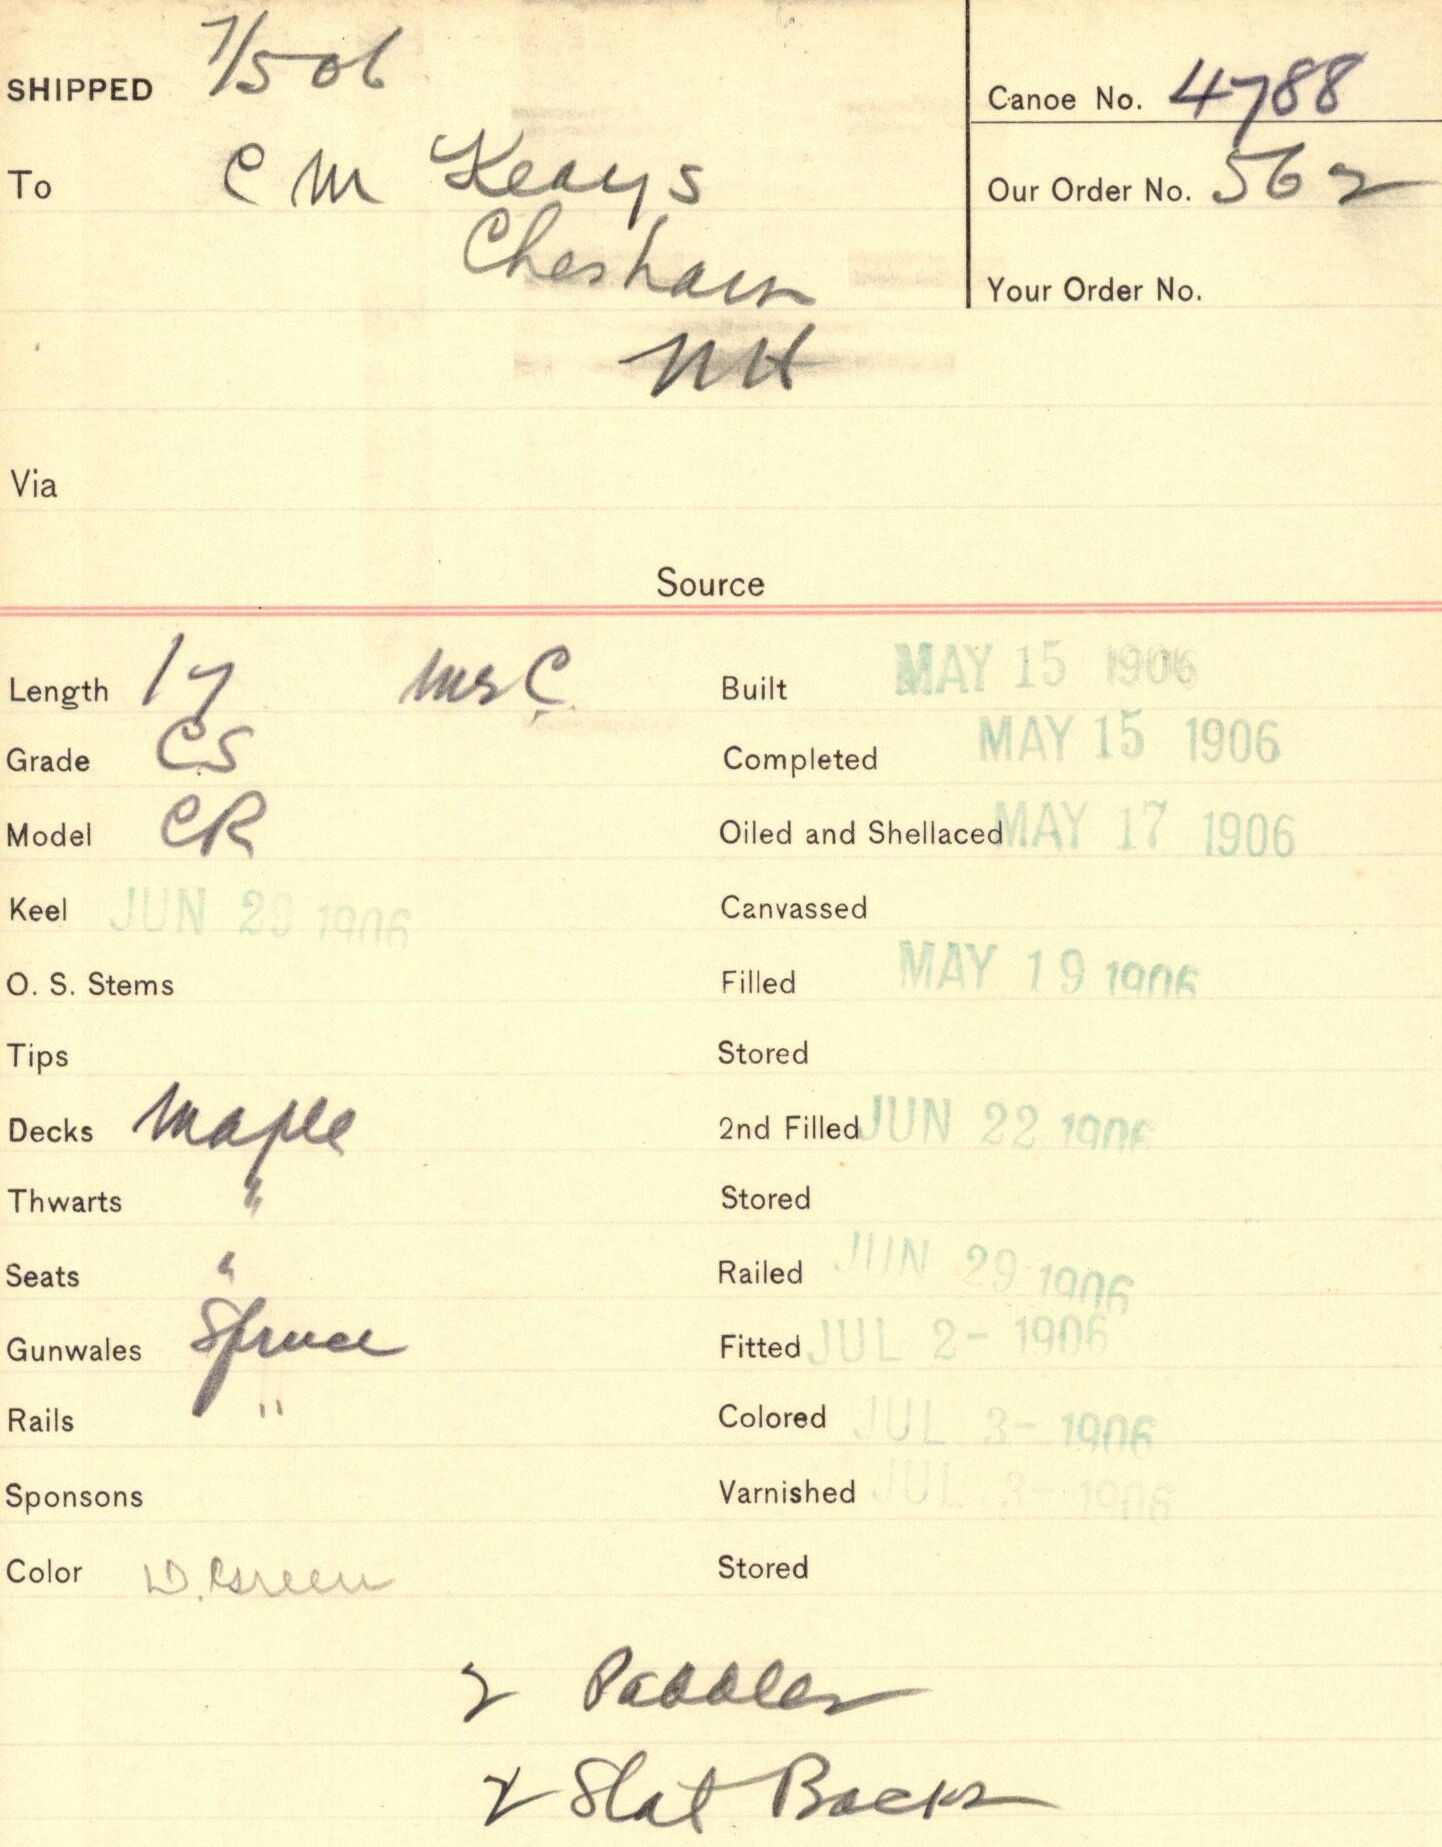 SHIPPED 7/5 06
Canoe No. 4788
To C M Keays
Our Order No. 562
Chesham
Your Order No.
NH
Via
Source
Length 17
Built MAY 15 1906
Grade CS
Completed MAY 15 1906
Model CR
Oiled and Shellaced MAY 17 1906
Keel JUN 29 1906
Canvassed
O. S. Stems
Filled MAY 19 1906
Tips
Stored
Decks Maple
2nd Filled JUN 22 1906
Thwarts "
Stored
Seats "
Railed JUN 29 1906
Gunwales Spruce
Fitted JUL 2- 1906
Rails "
Colored JUL 3- 1906
Sponsons
Varnished JUL 3- 1906
Color D. Green
Stored
2 Paddles
2 Slat Backs